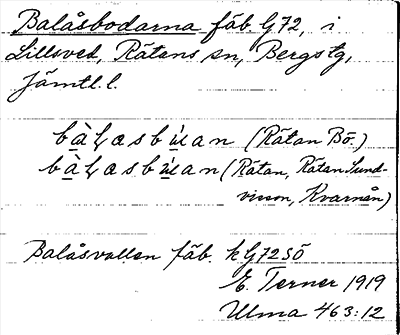 Balåsbodarna fäb. G72, i
Lillsved, Rätans sn, Bergs tg,
Jämtl. l.
(Rätan Bö.)
(Rätan, Rätan Sund-
visson, Kvarnån)
Balåsvallen fäb. k G72 SÖ
E. Terner 1919
Ulma 463:12